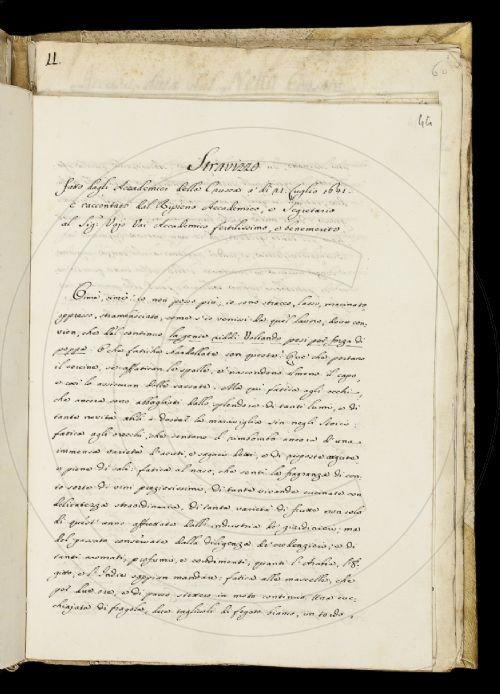 11.
60
46
Stravizzo
fatto dagli Accademici della Crusca a' dì 21. Luglio 1641.
e raccontato dal Ripieno Accademico, e Segretario
al Sig.r Ugo Vai Accademico fertilissimo, e benemerito
Oimè, oimè: io non posso più; io sono stracco, lasso, macinato,
oppresso, stramazzato, come s'io venissi da quel lavoro, dove con-
vien, che dal continuo la gente ridda Voltando pesi per forza di
poppa. O che fatiche con questa: Que' che portano
il cercine, se affatican le spalle, si nascondono almeno il capo,
e così lo assicuran dalle sassate. Ma qui fatica agli occhi,
che ancora sono abbagliati dallo splendore di tanti lumi, e di
tante novità, a la maraviglia sin negli
fatica agli orecchi, che sentono il rimbombo ancora d'una
immensa varietà d'acuti, e sapidi detti, e di risposte argute,
e piene di sali: fatica al naso, che sentì la fragranza di cen-
to sorte di vini preziosissimi, di tante vivande cucinate con
delicatezza straordinaria, di tanta varietà di frutte non solo
di quest' anno affrettate dall' industria de' giardinieri, ma
del passato conservate dalla diligenza de' credenzieri; e di
tanti aromati, profumi, e condimenti, quanti l' Arabia, l' E-
gitto, e l' India sappian mandare: fatica alle mascelle, che
per due ore, e di passo stettero in moto continuo. Una cuc-
chiajata di fragole, due tagliuoli di fegato bianco, un tordo,